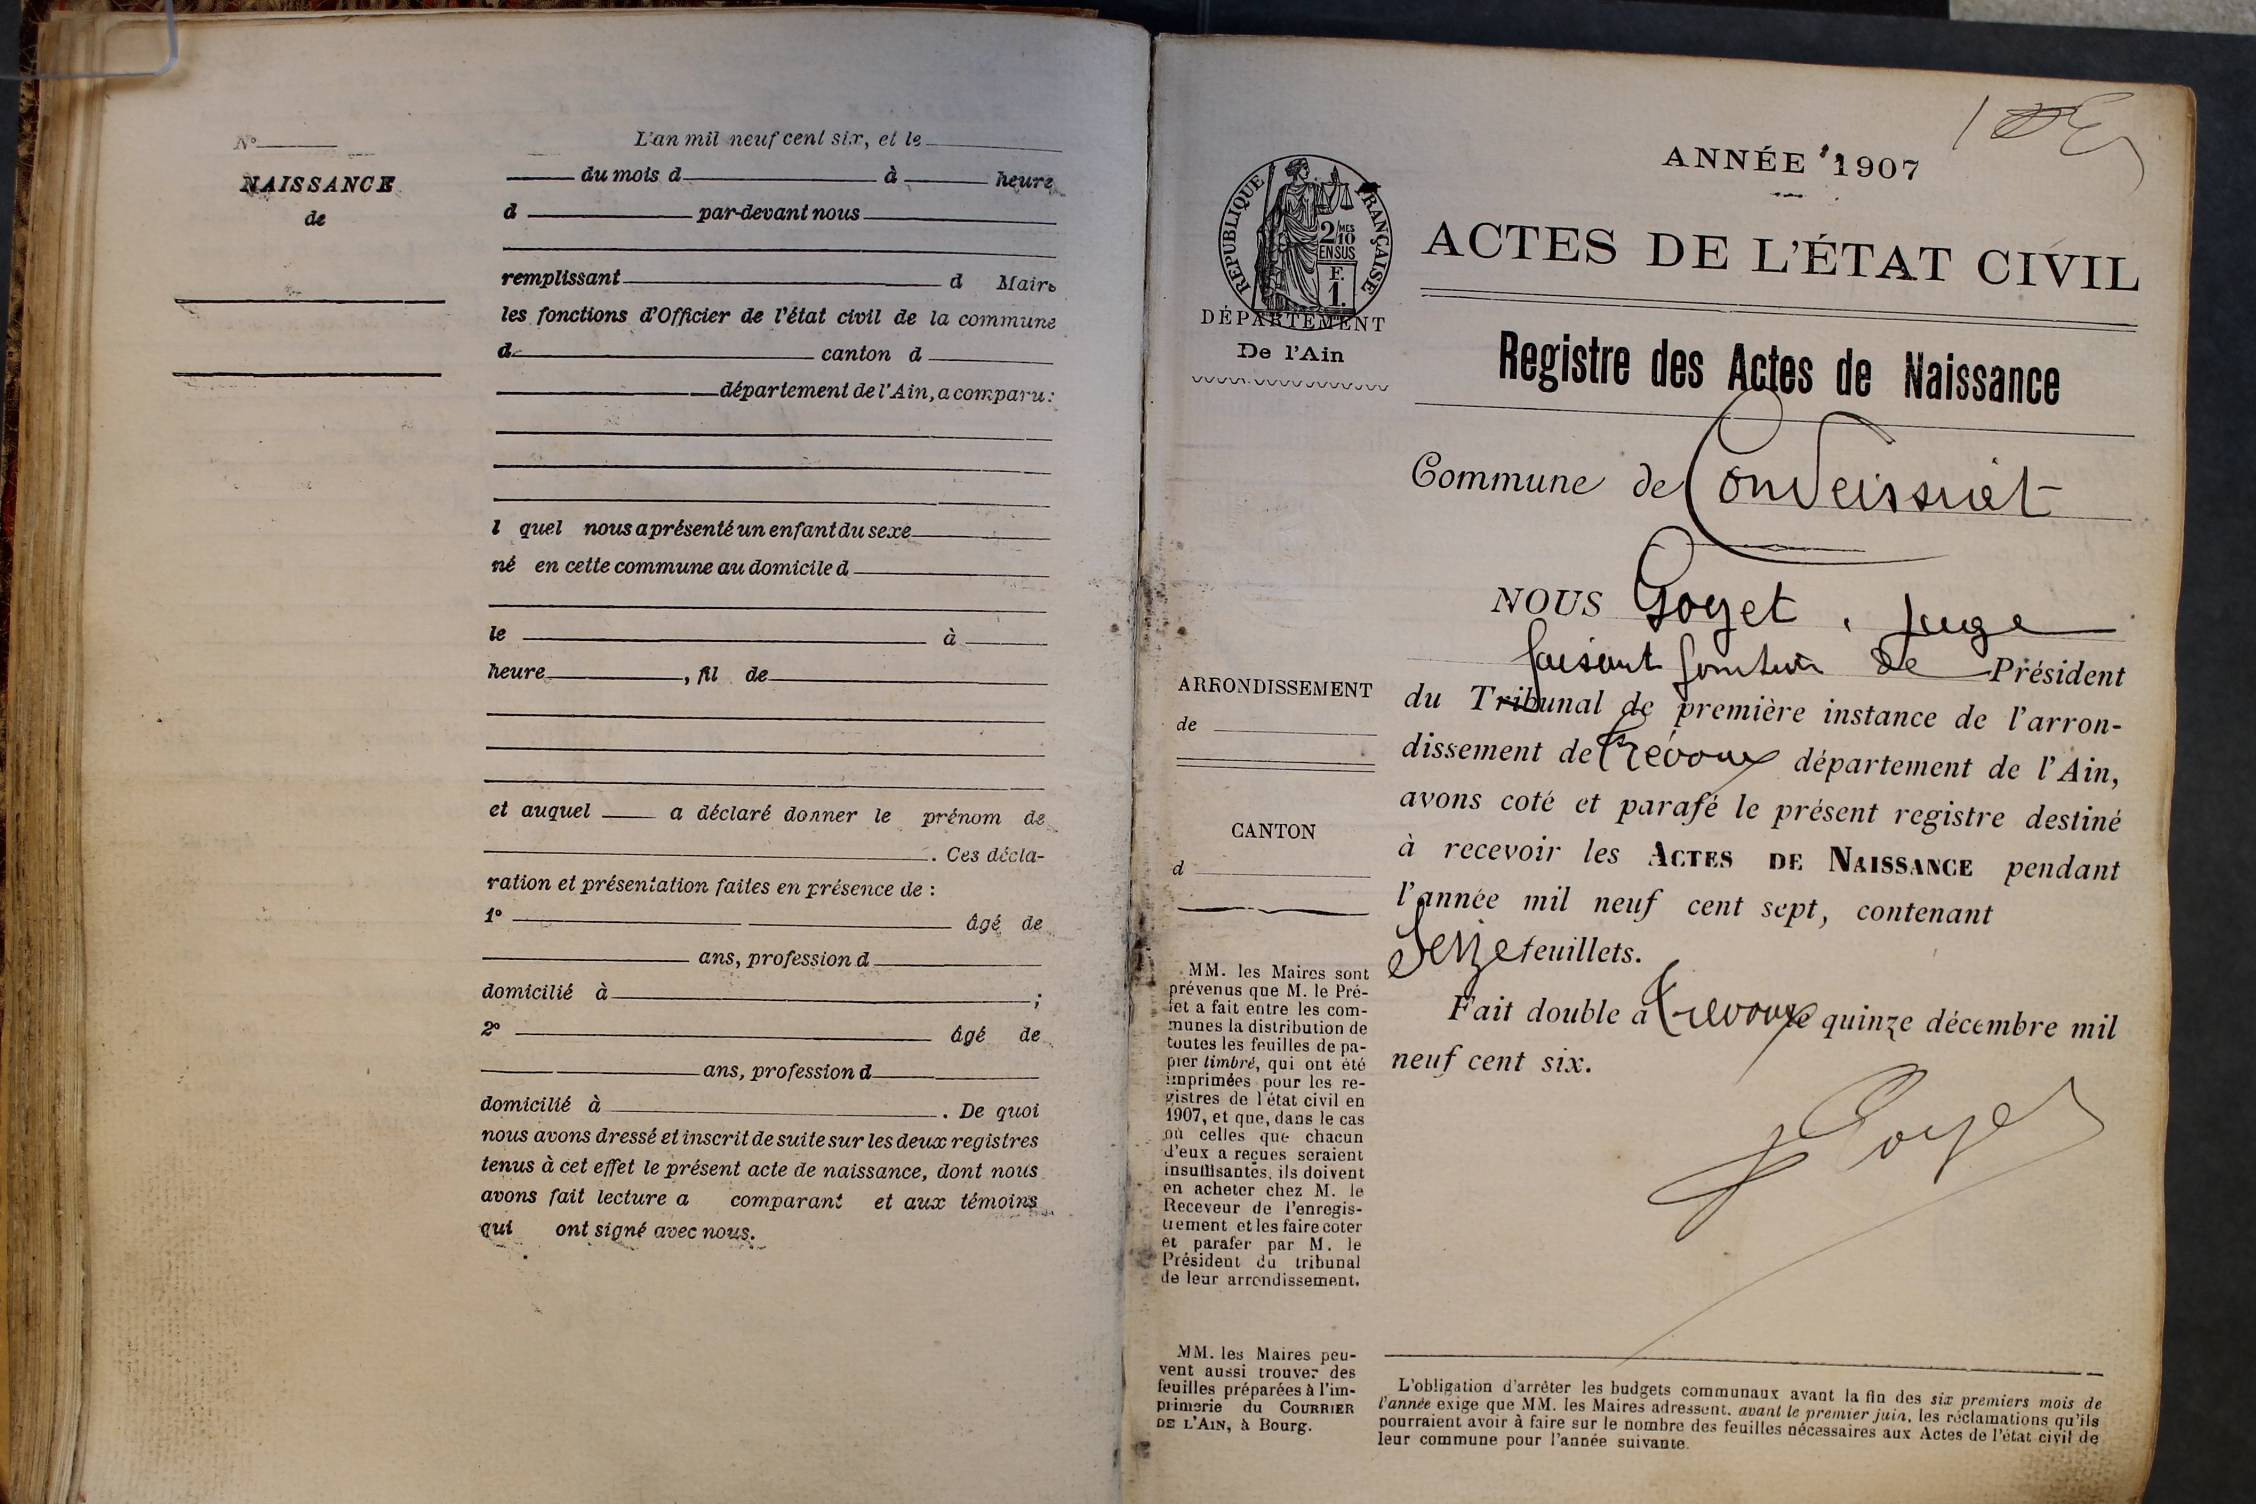 N°
NAISSANCE
de
L'an mil neuf cent six, et le
du mois d à heure
d par-devant nous
remplissant d Maire
les fonctions d'Officier de l'état civil de la commune
d canton d
département de l'Ain, a comparu :
l quel nous a présenté un enfant du sexe
né en cette commune au domicile d
le à
heure , fil de
et auquel a déclaré donner le prénom de
. Ces décla-
ration et présentation faites en présence de :
1° âgé de
ans, profession d
domicilié à ;
2° âgé de
ans, profession d
domicilié à . De quoi
nous avons dressé et inscrit de suite sur les deux registres
tenus à cet effet le présent acte de naissance, dont nous
avons fait lecture a comparant et aux témoins
qui ont signé avec nous.
ANNÉE 1907
RÉPUBLIQUE FRANÇAISE
2 MES
10
EN SUS
F.
1.
DÉPARTEMENT
De l'Ain
ACTES DE L'ÉTAT CIVIL
Registre des Actes de Naissance
Commune de Condeissiat
NOUS Goyet, juge
faisant fonction de Président
du Tribunal de première instance de l'arron-
dissement de Trévoux département de l'Ain,
avons coté et parafé le présent registre destiné
à recevoir les ACTES DE NAISSANCE pendant
l'année mil neuf cent sept, contenant
Seize feuillets.
Fait double à Trévoux le quinze décembre mil
neuf cent six.
Goyet
ARRONDISSEMENT
de
CANTON
d
MM. les Maires sont
prévenus que M. le Pré-
fet a fait entre les com-
munes la distribution de
toutes les feuilles de pa-
pier timbré, qui ont été
imprimées pour les re-
gistres de l'état civil en
1907, et que, dans le cas
où celles que chacun
d'eux a reçues seraient
insuffisantes, ils doivent
en acheter chez M. le
Receveur de l'enregis-
trement et les faire coter
et parafer par M. le
Président du tribunal
de leur arrondissement.
MM. les Maires peu-
vent aussi trouver des
feuilles préparées à l'im-
primerie du COURRIER
DE L'AIN, à Bourg.
L'obligation d'arrêter les budgets communaux avant la fin des six premiers mois de
l'année exige que MM. les Maires adressent, avant le premier juin, les réclamations qu'ils
pourraient avoir à faire sur le nombre des feuilles nécessaires aux Actes de l'état civil de
leur commune pour l'année suivante.